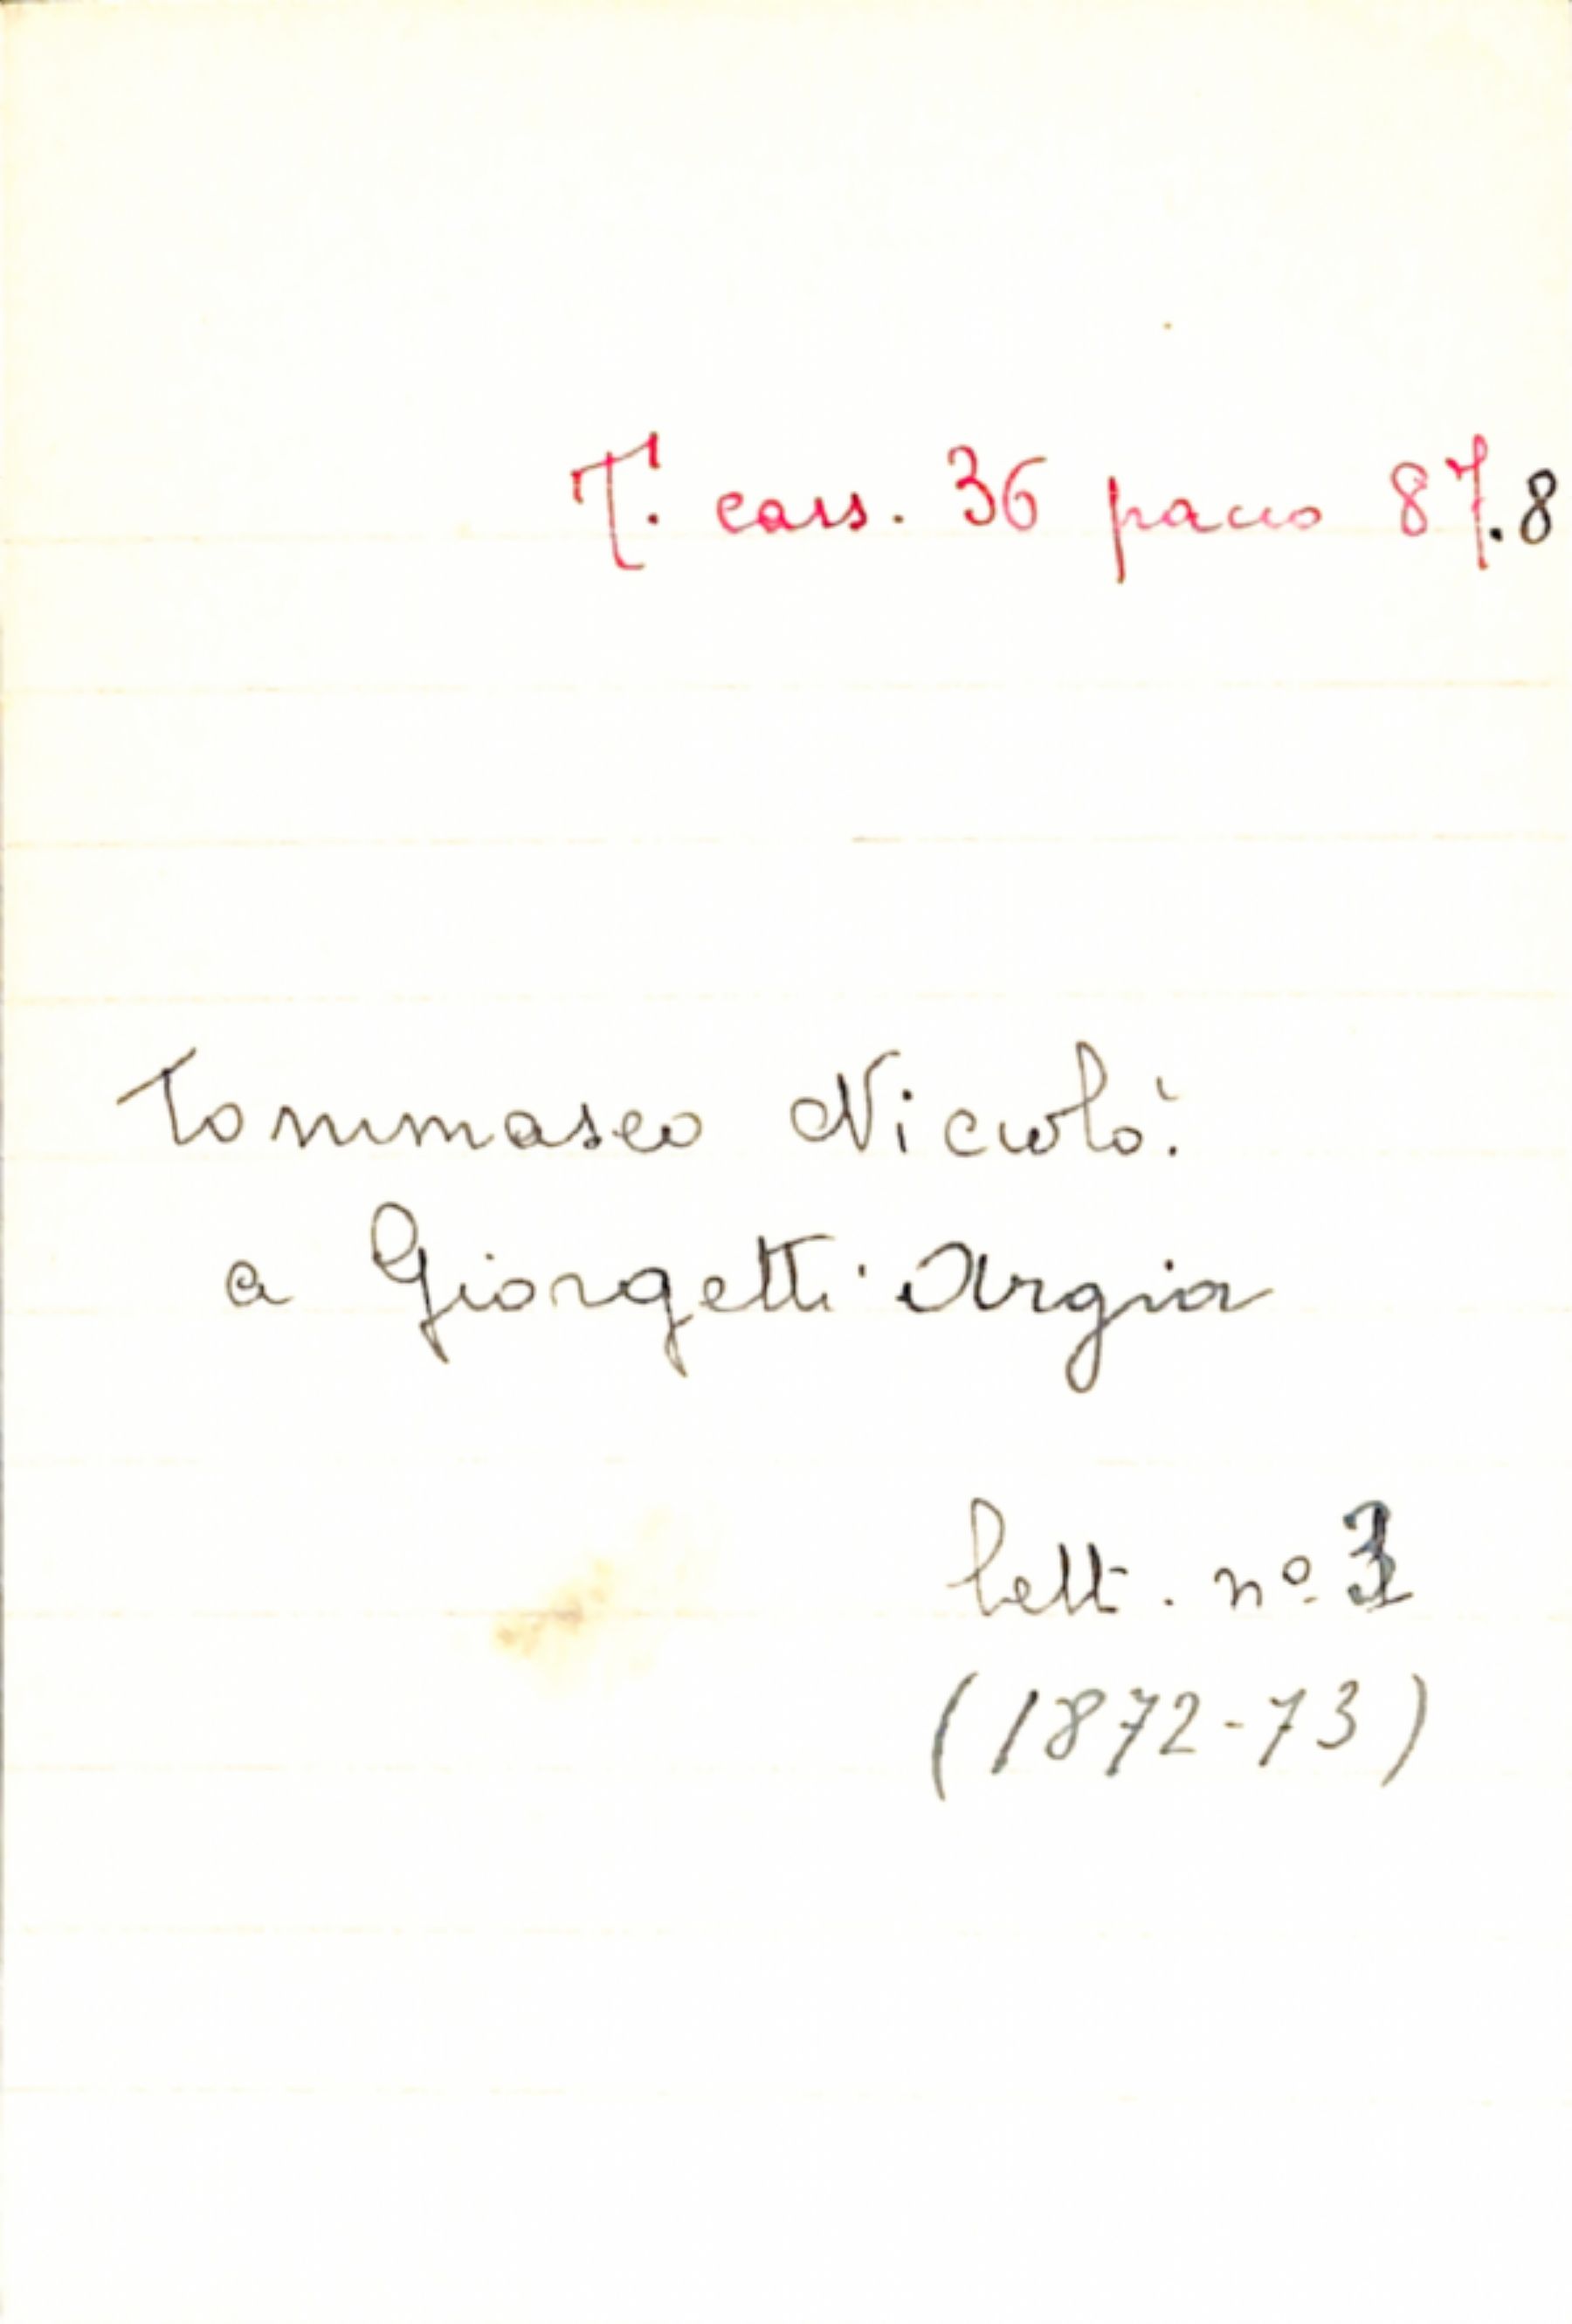 T. cass. 36 pacco 87.8
Tommaseo Niccolò.
a Giorgetti Argia
lett. nº 3
(1872-73)